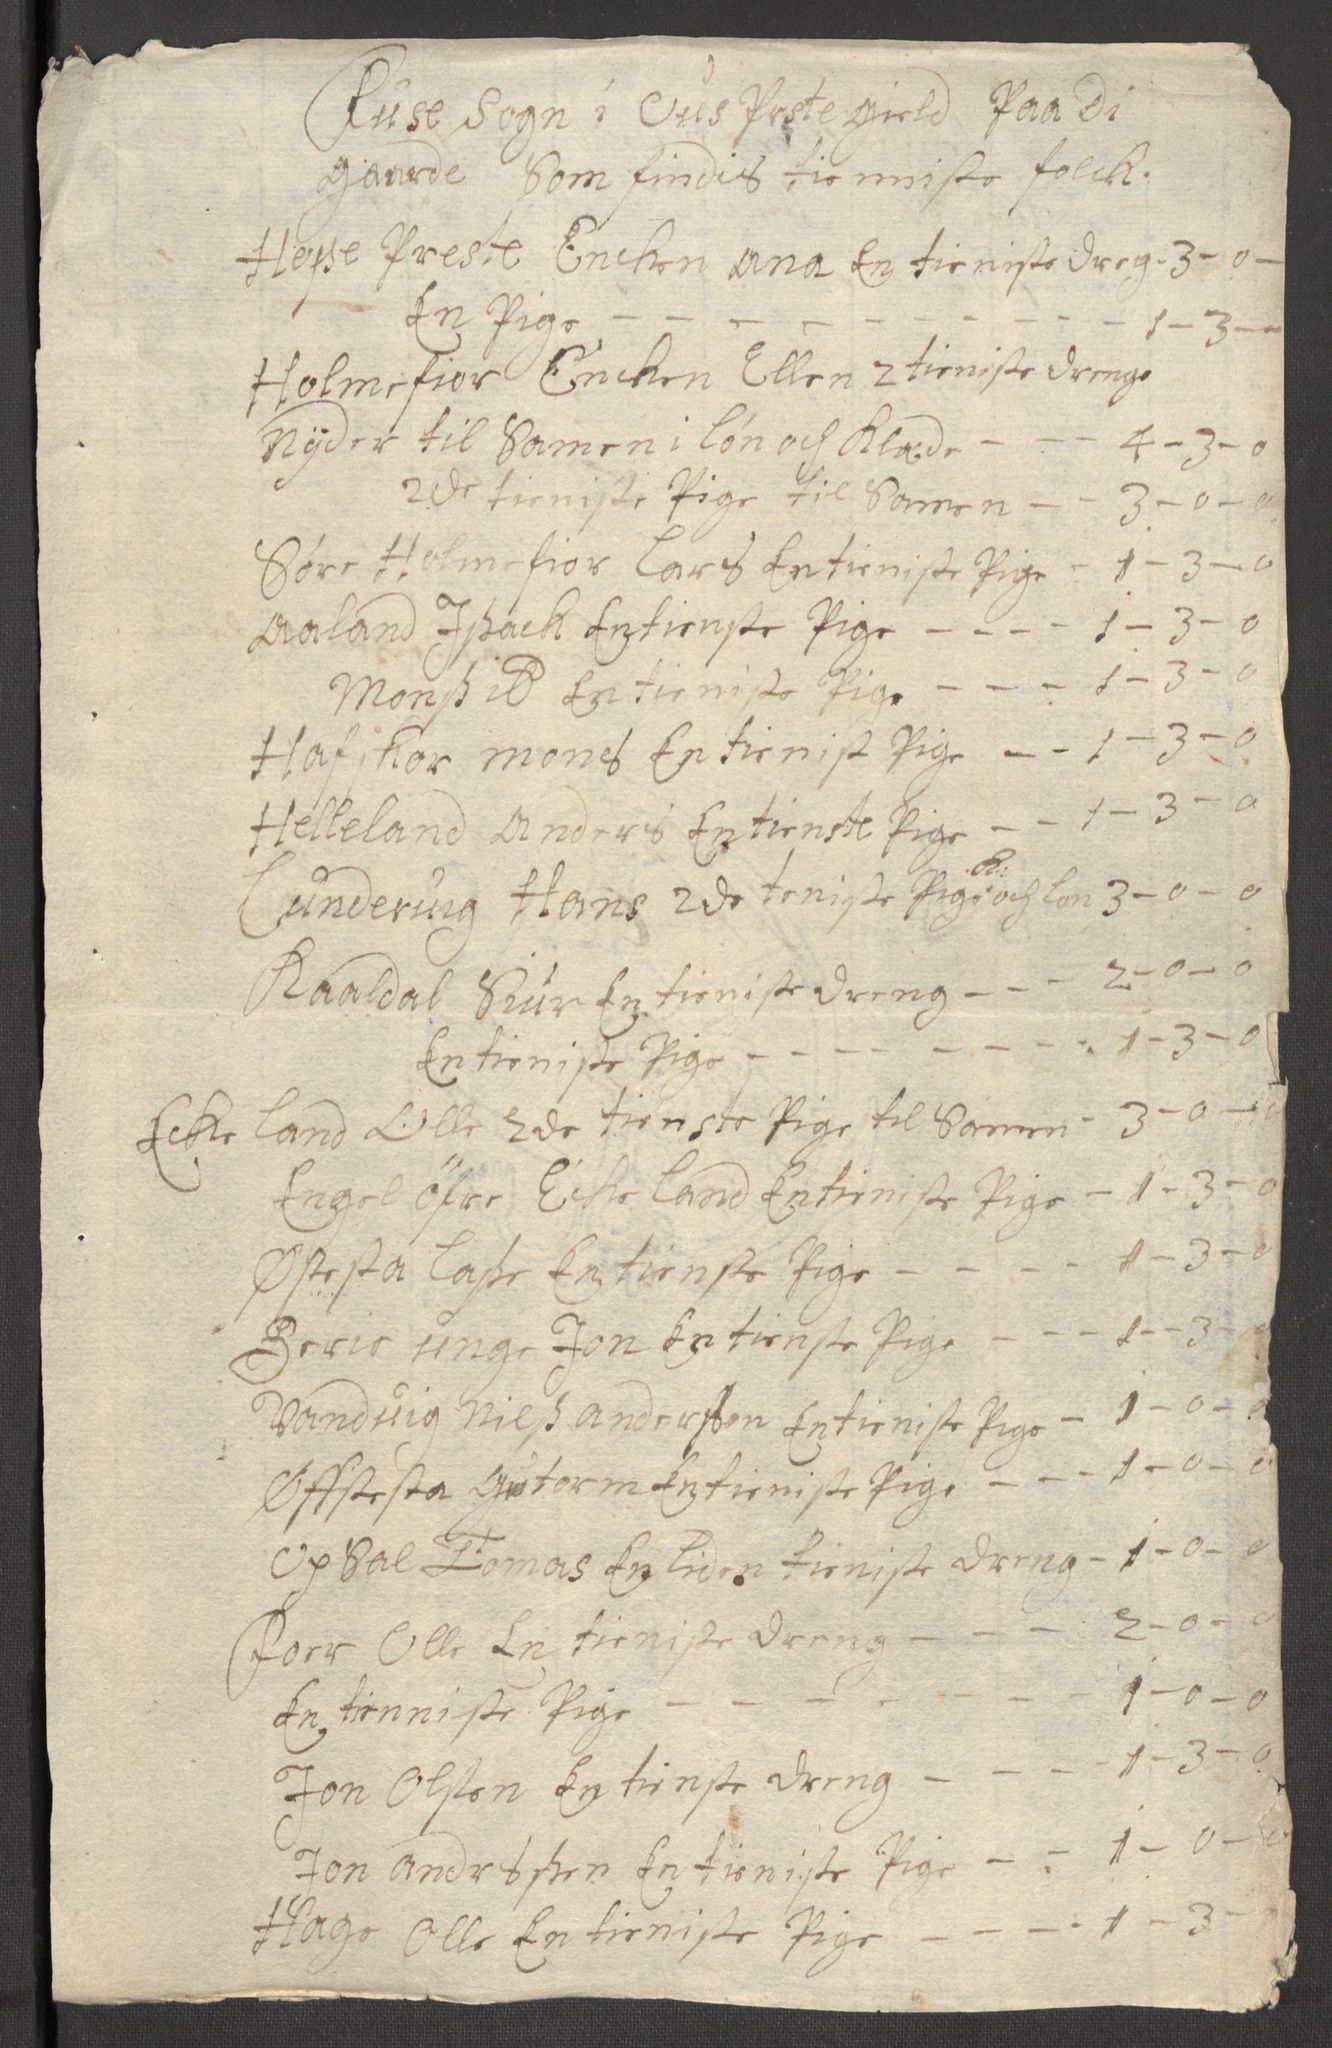 Fuse Sogn i Ous Prste gield Paa Di
gaarde Som findis tienniste folck.
Hope Preste Encken Ana En tieniste dreg - 3 - 0 -
En Pige - - - - - - - - - - 1 - 3 -
Holmefior Encken Ellen 2 tieniste drenge
Nyder til Samen i lón och Klæde - - - 4 - 3 - 0
2de tieniste Pige til Samen - - 3 - 0 - 0
Sóre Holmefior Lars En tieniste Pige - 1 - 3 - 0
Aaland Ishack En tienste Pige - - - - 1 - 3 - 0
Monß ib En tieniste Pige - - - 1 - 3 - 0
Hafskor mons En tienist Pige - - 1 - 3 - 0
Helleland Anders En tienste Pige - - 1 - 3 - 0
Lunderúig Hans 2de teniste Pige K: och lon 3 - 0 - 0
Kaaldal Siúr En tieniste dreng - - - 2 - 0 - 0
En tieniste Pige - - - - - - - - 1 - 3 - 0
Ecke land Olle 2de tienste Pige til Samen - 3 - 0 - 0
Engel öfre Ecke land En tieniste Pige - 1 - 3 - 0
Østesta Laße En tienste Pige - - - - 1 - 3 - 0
Berie unge Jon En tienste Pige - - - 1 - 3 - 0
Vanduig Nielß anderßon En tieniste Pige - 1 - 0 - 0
Øffstesta Gutorm En tieniste Pige - - - 1 - 0 - 0
Op Sal Tomas En liden tieniste dreng - 1 - 0 - 0
Foer Olle En tieniste dreng - - - - 2 - 0 - 0
En tienniste Pige - - - - - - - 1 - 0 - 0
Jon Olsten En tienste dreng - - - - 1 - 3 - 0
Jon andrsßen En tieniste Pige - - 1 - 0 -
Hage Olle En tieniste Pige - - - - 1 - 3 -